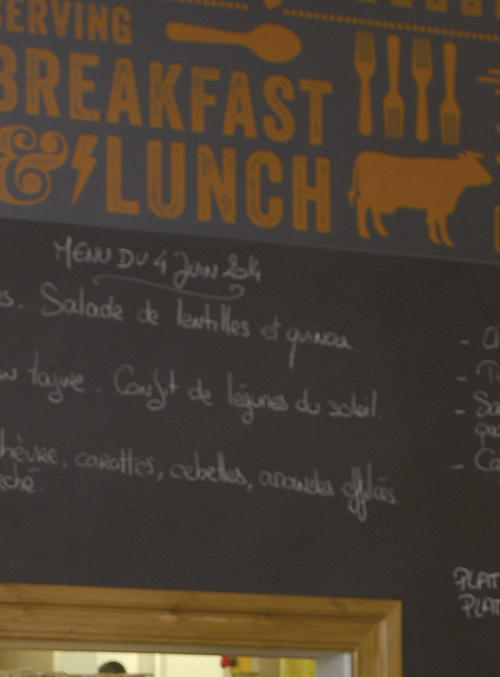 SERVING
BREAKFAST
& LUNCH
MENU DU 4 Juin 2014
es. Salade de lentilles et quinoa.
tajine. Confit de légumes du soleil.
hèvre, carottes, cebettes, amandes effilées
ché.
- 
- 
- Sa
- Co
PLAT
PLAT